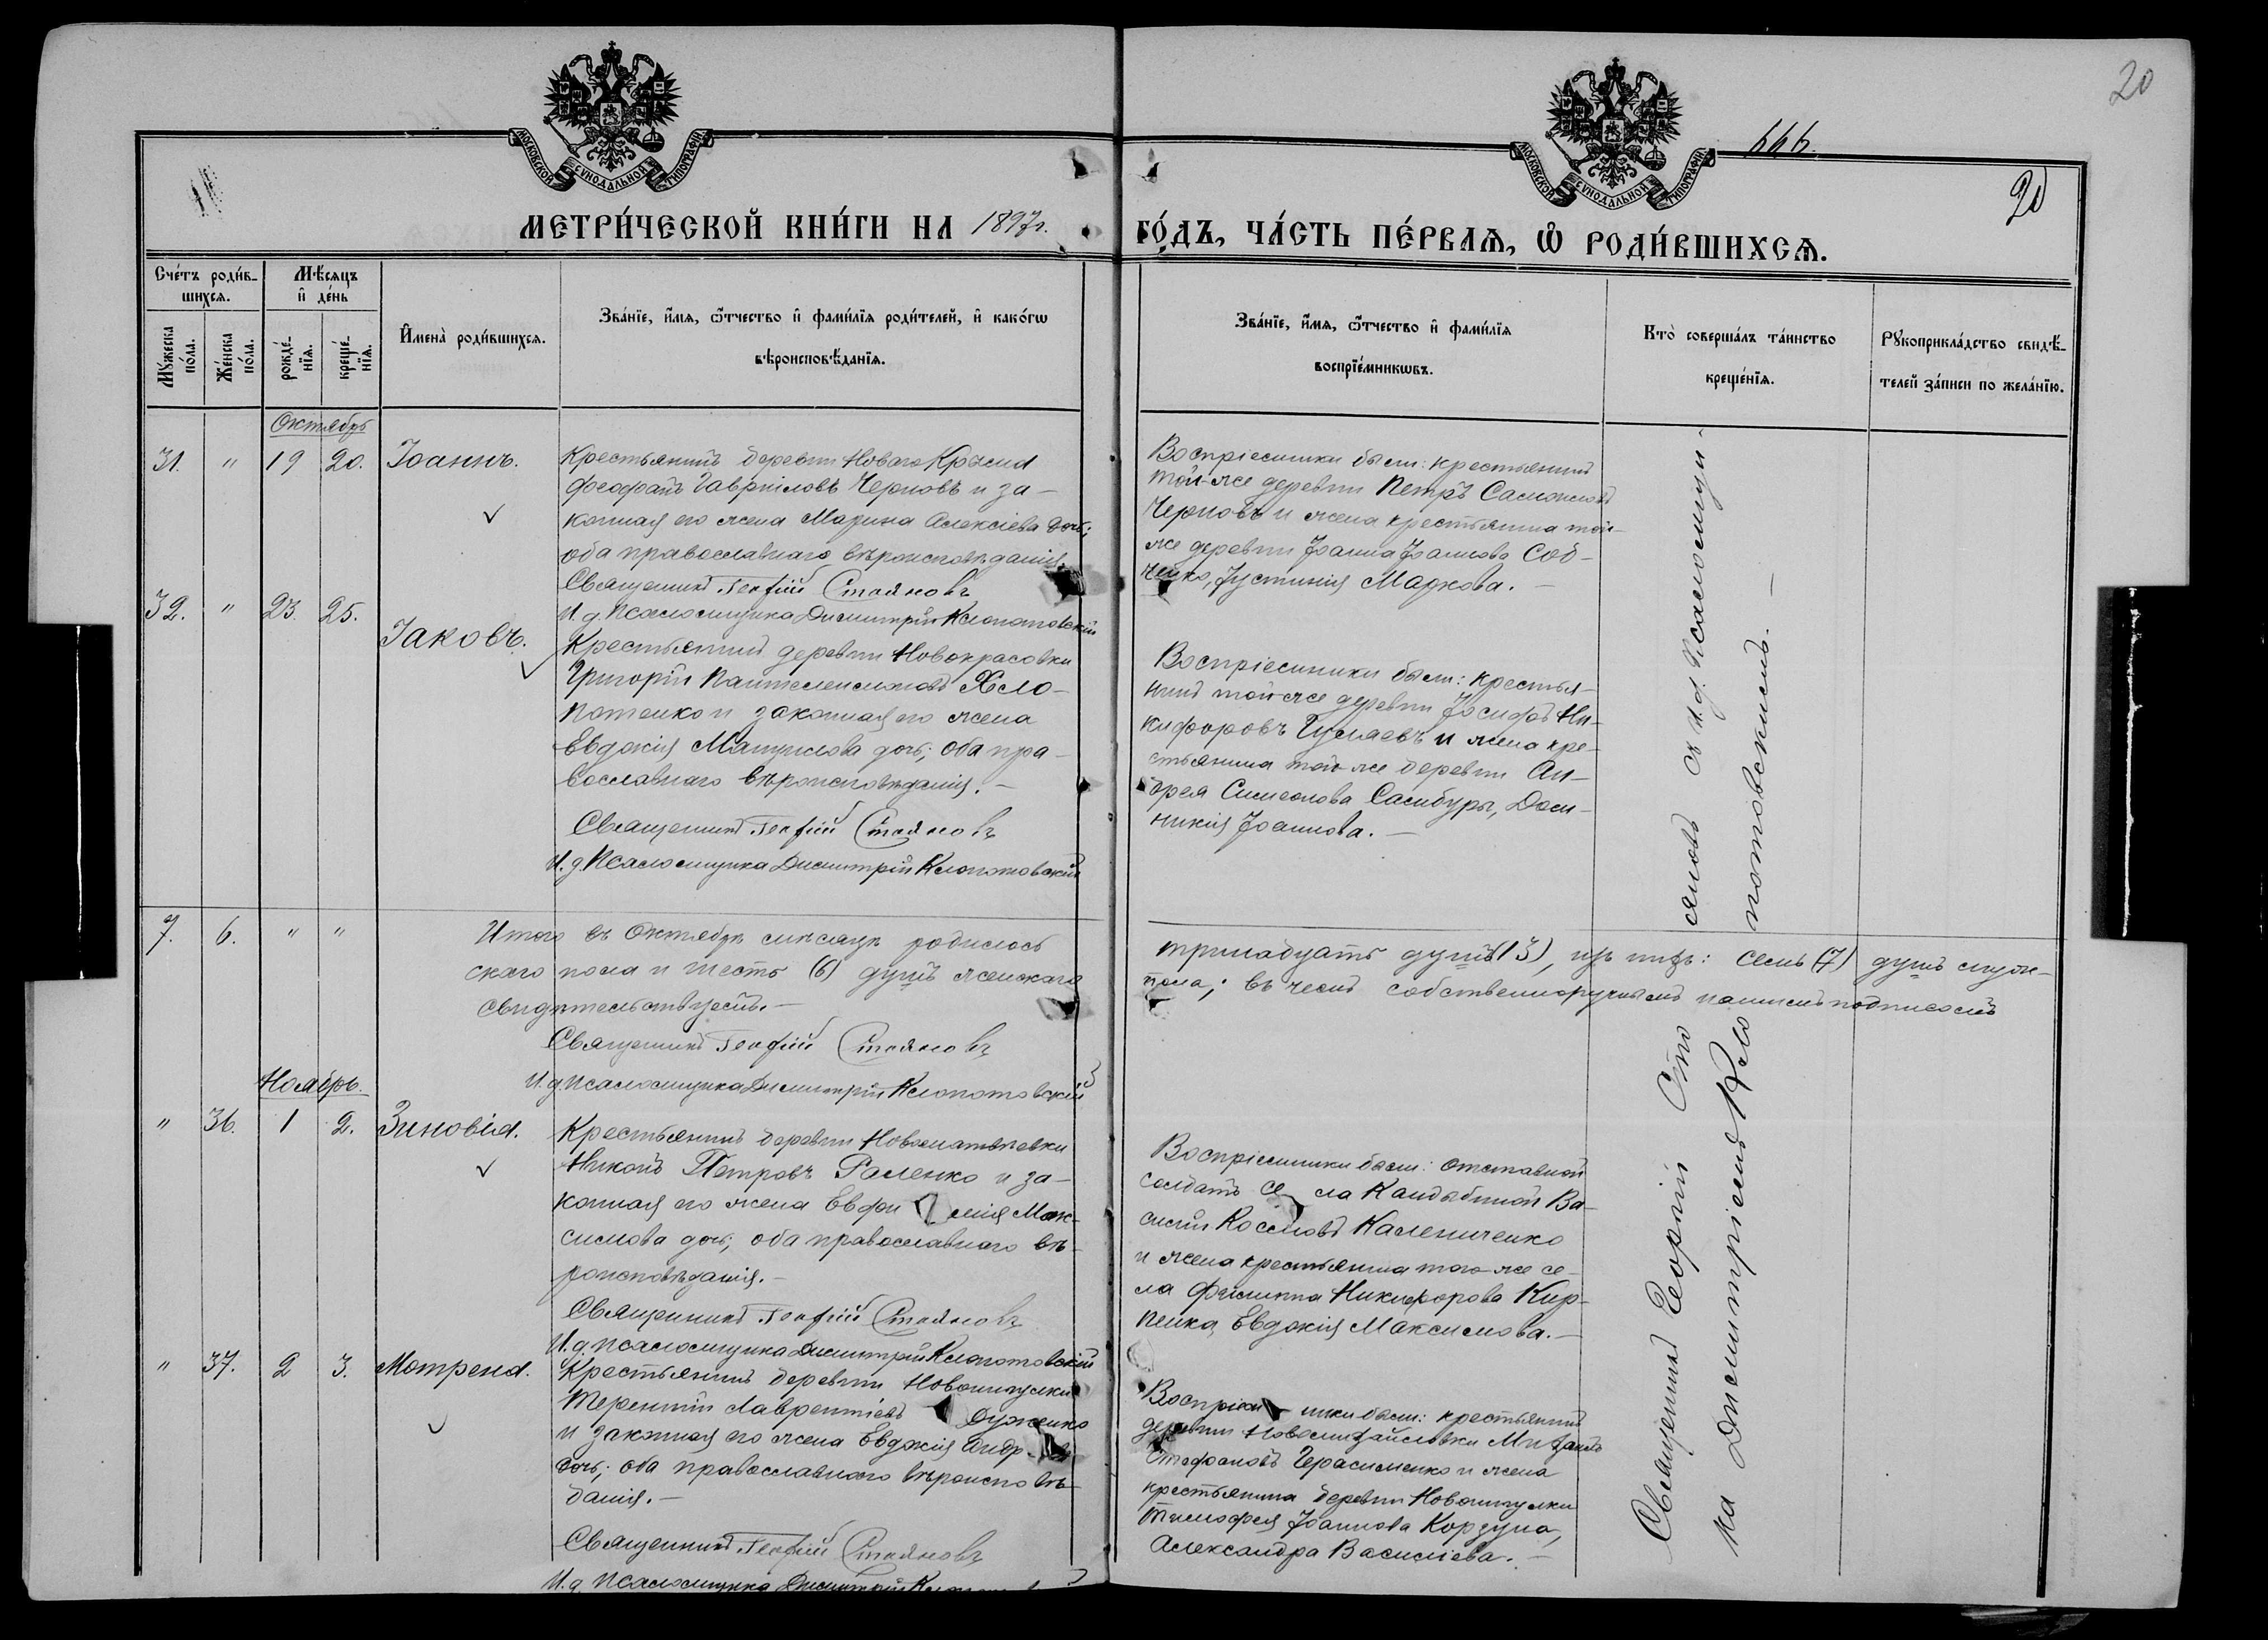 20
666.
20
МОСКОВСКОЙ СѴНОДАЛЬНОЙ ТИПОГРАФІИ
МОСКОВСКОЙ СѴНОДАЛЬНОЙ ТИПОГРАФІИ
МЕТРИ́ЧЕСКОЙ КНИ́ГИ НА 1897 г. ГО́ДЪ, ЧА́СТЬ ПЕ́РВАѦ, Ѡ҆ РОДИ́ВШИХСѦ.
Сче́тъ роди́в-
шихся.
Мѣ́сяцъ
и҆ де́нь
Мꙋ́жеска по́ла.
Же́нска по́ла.
рожде́-
нїѧ.
креще́-
нїѧ.
И҆мена̀ роди́вшихся.
Зва́нїе, и҆́мѧ, ѻ҆́тчество и҆ фами́лїѧ роди́телей, и҆ како́гѡ
вѣроисповѣ́данїѧ.
Зва́нїе, и҆́мѧ, ѻ҆́тчество и҆ фами́лїѧ
воспрїе́мникѡвъ.
Кто̀ соверша́лъ та́инство
креще́нїѧ.
Рꙋкоприкла́дство свидѣ́-
телей за́писи по жела́нїю.
Октябрь
31. " 19 20. Іоаннъ.
Крестьянинъ деревни Новаго Крыма
Феофанъ Гавріиловъ Черновъ и за-
конная его жена Марина Алексіева дочь;
оба православнаго вѣроисповѣданія.
Священникъ Георгій Стояновъ
И. д. Псаломщика Димитрій Клопотовскій
Воспріемники были: крестьянинъ
той-же деревни Петръ Самоиловъ
Черновъ и жена крестьянина той-
же деревни Іоанна Іоаннова Соб-
ченко, Іустинія Маркова. -
32. " 23. 25. Іаковъ.
Крестьянинъ деревни Новокрасовки
Григорій Пантелеимоновъ Хло-
потенко и законная его жена
Евдокія Мануилова дочь; оба пра-
вославнаго вѣроисповѣданія. -
Священникъ Георгій Стояновъ
И. д. Псаломщика Димитрій Клопотовскій
Воспріемники были: крестья-
нинъ той-же деревни Іосифъ Ни-
кифоровъ Гуляевъ и жена кре-
стьянина той-же деревни Ан-
дрея Симеонова Самбуры, Дом-
никія Іоаннова. -
7. 6. " " Итого въ Октябрѣ мѣсяцѣ родилось тринадцать душъ (13), изъ нихъ: семь (7) душъ муж-
скаго пола и шесть (6) душъ женскаго пола; въ чемъ собственноручнымъ нашимъ подписомъ
свидѣтельствуемъ. -
Священникъ Георгій Стояновъ
И. д. псаломщика Димитрій Клопотовскій
Ноябрь.
" 36. 1 2. Зиновія.
Крестьянинъ деревни Новоматвѣевки
Никонъ Петровъ Галенко и за-
конная его жена Евфимія Мак-
симова дочь; оба православнаго вѣ-
роисповѣданія. -
Священникъ Георгій Стояновъ
И. д. псаломщика Димитрій Клопотовскій
Воспріемники были: отставной
солдатъ села Кандыбиной Ва-
силій Космовъ Калениченко
и жена крестьянина того же се-
ла Филиппа Никифорова Кир-
пенка, Евдокія Максимова. -
" 37. 2 3. Мотрена.
Крестьянинъ деревни Новошмулки
Терентій Лаврентіевъ Дуженко
и законная его жена Евдокія
дочь; оба православнаго вѣроисповѣ-
данія. -
Священникъ Георгій Стояновъ
И. д. Псаломщика Димитрій
Воспріемники были: крестьянинъ
деревни Новомихайловки Михаилъ
Стефановъ Герасименко и жена
крестьянина деревни Новошмулки
Тимофея Іоаннова Корзуна,
Александра Василіева. -
Священникъ Георгій Стояновъ съ и. д. Псаломщи-
ка Димитріемъ Клопотовскимъ. -